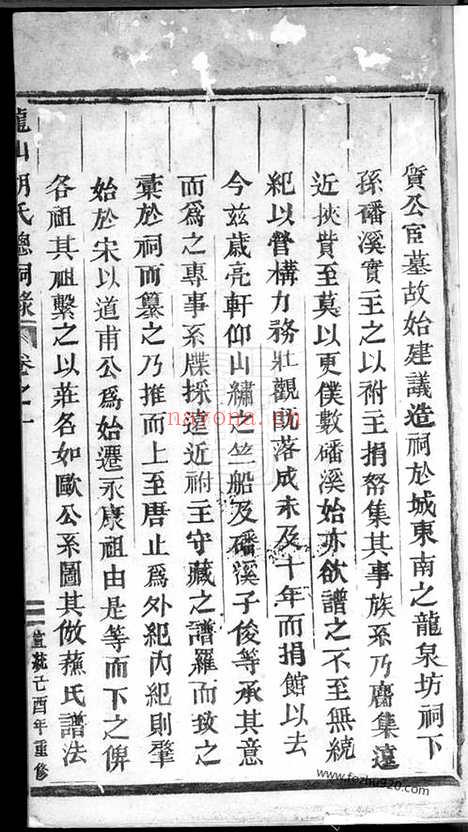 質公臣墓故始建議造祠於城東南之龍泉坊祠下
孫磻溪實主之以祔主捐帑集其事族孫乃麕集遠
近挾貲至莫以更僕數磻溪始亦欲譜之不至無統
紀以督構力務壯觀瞻落成未及十年而捐館以去
今兹歳亮軒仰山繡芝竺船及磻溪子俊等承其意
而爲之專事系牒採遠近祔主守藏之譜羅而致之
彙於祠而纂之乃推而上至唐止爲外紀内紀則肇
始於宋以道甫公爲始遷永康祖由是等而下之俾
各祖其祖繫之以莊名如歐公系圖其倣蘇氏譜法
龍山胡氏總祠錄
卷之一
宣統己酉年重修
nayona.cn
www.fezhu920.com